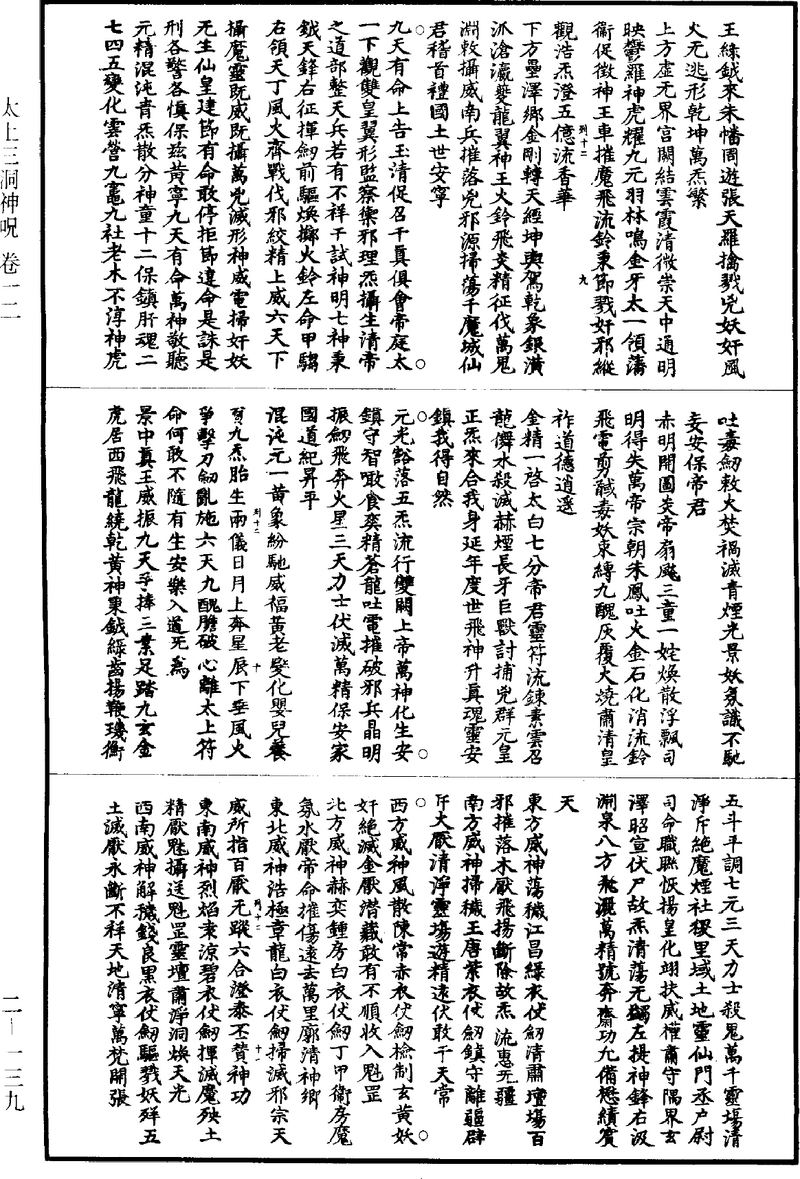 太上三洞神呪 卷二
二—一三九
王綠鉞來朱幡周遊張天羅擒戮兇妖奸風
火无逃形乾坤萬炁繁
上方虛无界宮闕結雲霞清微崇天中通明
映鬱羅神虎耀九元羽林鳴金牙太一領濤
衛促徵神王車摧魔飛流鈴秉節戮奸邪縱
觀浩炁澄五億流香華
下方壘澤鄉金剛轉天經坤輿駕乾象銀潢
派滄瀛夔龍翼神王火鈴飛炎精征伐萬鬼
淵敕攝威南兵摧落兇邪源掃蕩千魔城仙
君稽首禮國土世安寧
九天有命上告玉清促召千真俱會帝庭太
一下觀雙皇翼形監察樂邪理炁攝生清帝
之道部整天兵若有不祥干試神明七神秉
鉞天鋒右征揮劒前驅煥擲火鈴左命甲騶
右領天丁風火齊戰伐邪絞精上威六天下
攝魔靈既威既攝萬兇滅形神威電掃奸妖
无生仙皇建節有命敢停拒節違命是誅是
刑各警各慎保茲黃寧九天有命萬神敬聽
元精混沌青炁散分神童十二保鎮肝魂二
七四五變化雲營九竈九社老木不淳神虎
吐毒劒敕火焚禍滅青煙光景妖氛識不馳
妄安保帝君
赤明開圖炎帝扇颷三童一姹煥散浮飄司
明得失萬帝宗朝朱鳳吐火金石化消流鈴
飛電剪馘毒妖束縛九醜灰覆火燒肅清皇
祚道德逍遥
金精一啓太白七分帝君靈符流鍊素雲召
龍儕水殺滅赫煙長牙巨獸討捕兇群元皇
正炁來合我身延年度世飛神升真瑰靈安
鎮我得自然
元光豁落五炁流行雙闕上帝萬神化生安
鎮守智噉食葵精蒼龍吐雷摧破邪兵晶明
振劒飛奔火星三天力士伏滅萬精保安家
國道紀昇平
混沌元一黄象紛馳威福黃老變化嬰兒養
育九炁胎生兩儀日月上奔星辰下垂風火
爭擊刀劒亂施六天九醜膽破心離太上符
命何敢不隨有生安樂入道死為
景中真王威振九天手捧三素足踏九玄金
虎居西飛龍繞乾黄神秉鉞綠齒揚鞭璣衡
五斗平調七元三天力士殺鬼萬千靈場清
淨斥絶魔煙社稷里域土地靈仙門丞户尉
司命職聯恢揚皇化翊扶威權肅守隅界玄
澤昭宣伏尸故炁清蕩无蠲左提神鋒右汲
淵泉八方飛灑萬精號奔齋功允備懋績賓
天
東方威神蕩穢江昌綠衣仗劒清肅壇場百
邪摧落木厭飛揚斷除故炁流惠无疆
南方威神掃穢王唐紫衣仗劒鎮守離疆辟
斥火厭清淨靈場遊精遠伏敢干天常
西方威神風散陳常赤衣仗劒檢制玄黃妖
奸絶滅金厭潛藏敢有不順收入魁罡
北方威神赫奕鍾房白衣仗劒丁甲衛房魔
氛水厭帝命摧傷遠去萬里廓清神鄉
東北威神浩極章龍白衣仗劒掃滅邪宗天
威所指百厭无蹤六合澄泰丕贊神功
東南威神烈焰秉涼碧衣仗劒揮滅魔殃土
精厭魁攝送魁罡靈壇肅淨洞煥天光
西南威神解穢錢良黑衣仗劒驅戮妖殍五
土滅厭永斷不祥天地清寧萬梵開張